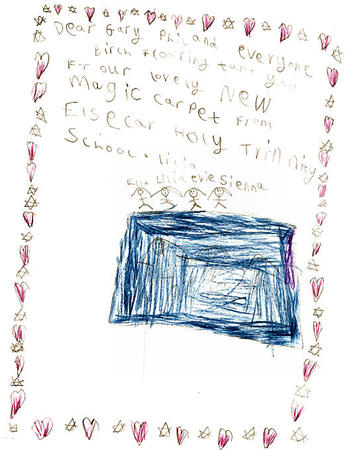 Dear Gary Phil and everyone
Birch flooring you
For our lovely New
Magic carpet from
Elsecar Holy Trinity
School. Lilia
Ella Lilia evie Sienna